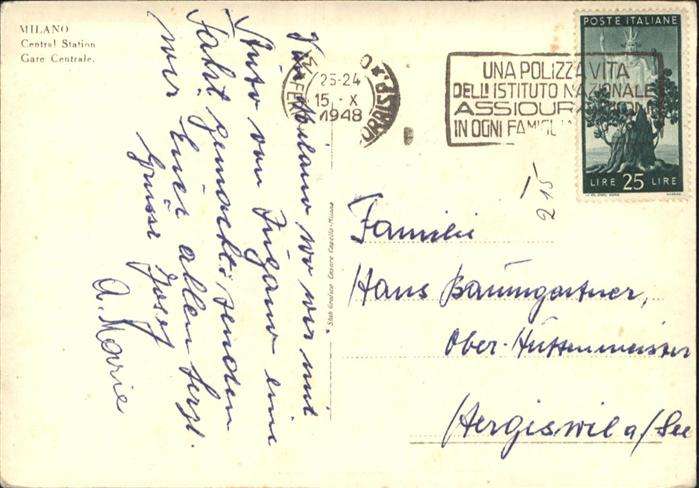 MILANO
Central Station
Gare Centrale.
Von Milano wo wir mit
Auto von Lugano eine
Fahrt gemacht senden
wir Euch allen herzl.
Grüsse Josef
A. Marie
Stab. Grafico Cesare Capello - Milano
MILANO
FERR.
23-24
15 . X
1948
CORRISP.
UNA POLIZZA VITA
DELL'ISTITUTO NAZIONALE
ASSICURAZIONI
IN OGNI FAMIGLIA
POSTE ITALIANE
LIRE 25 LIRE
Familie
Hans Baumgartner,
Ober-Hüttenmeister
Hergiswil a/See